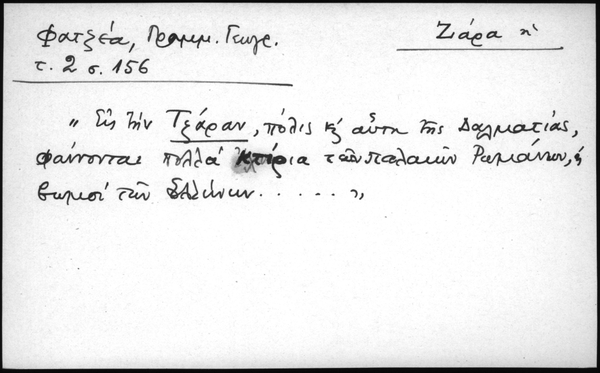 Φατζέα, Γραμμ. Γεωγρ.
τ. 2 σ. 156
Ζιάρα ἡ
„ Εἰς τὴν Τζάραν, πόλις κ᾽ αὕτη τῆς Δαλματίας,
φαίνονται πολλὰ κτίρια τῶν παλαιῶν Ρωμάνων, ἢ
βωμοὶ τῶν Ἑλλήνων . . . . . . „